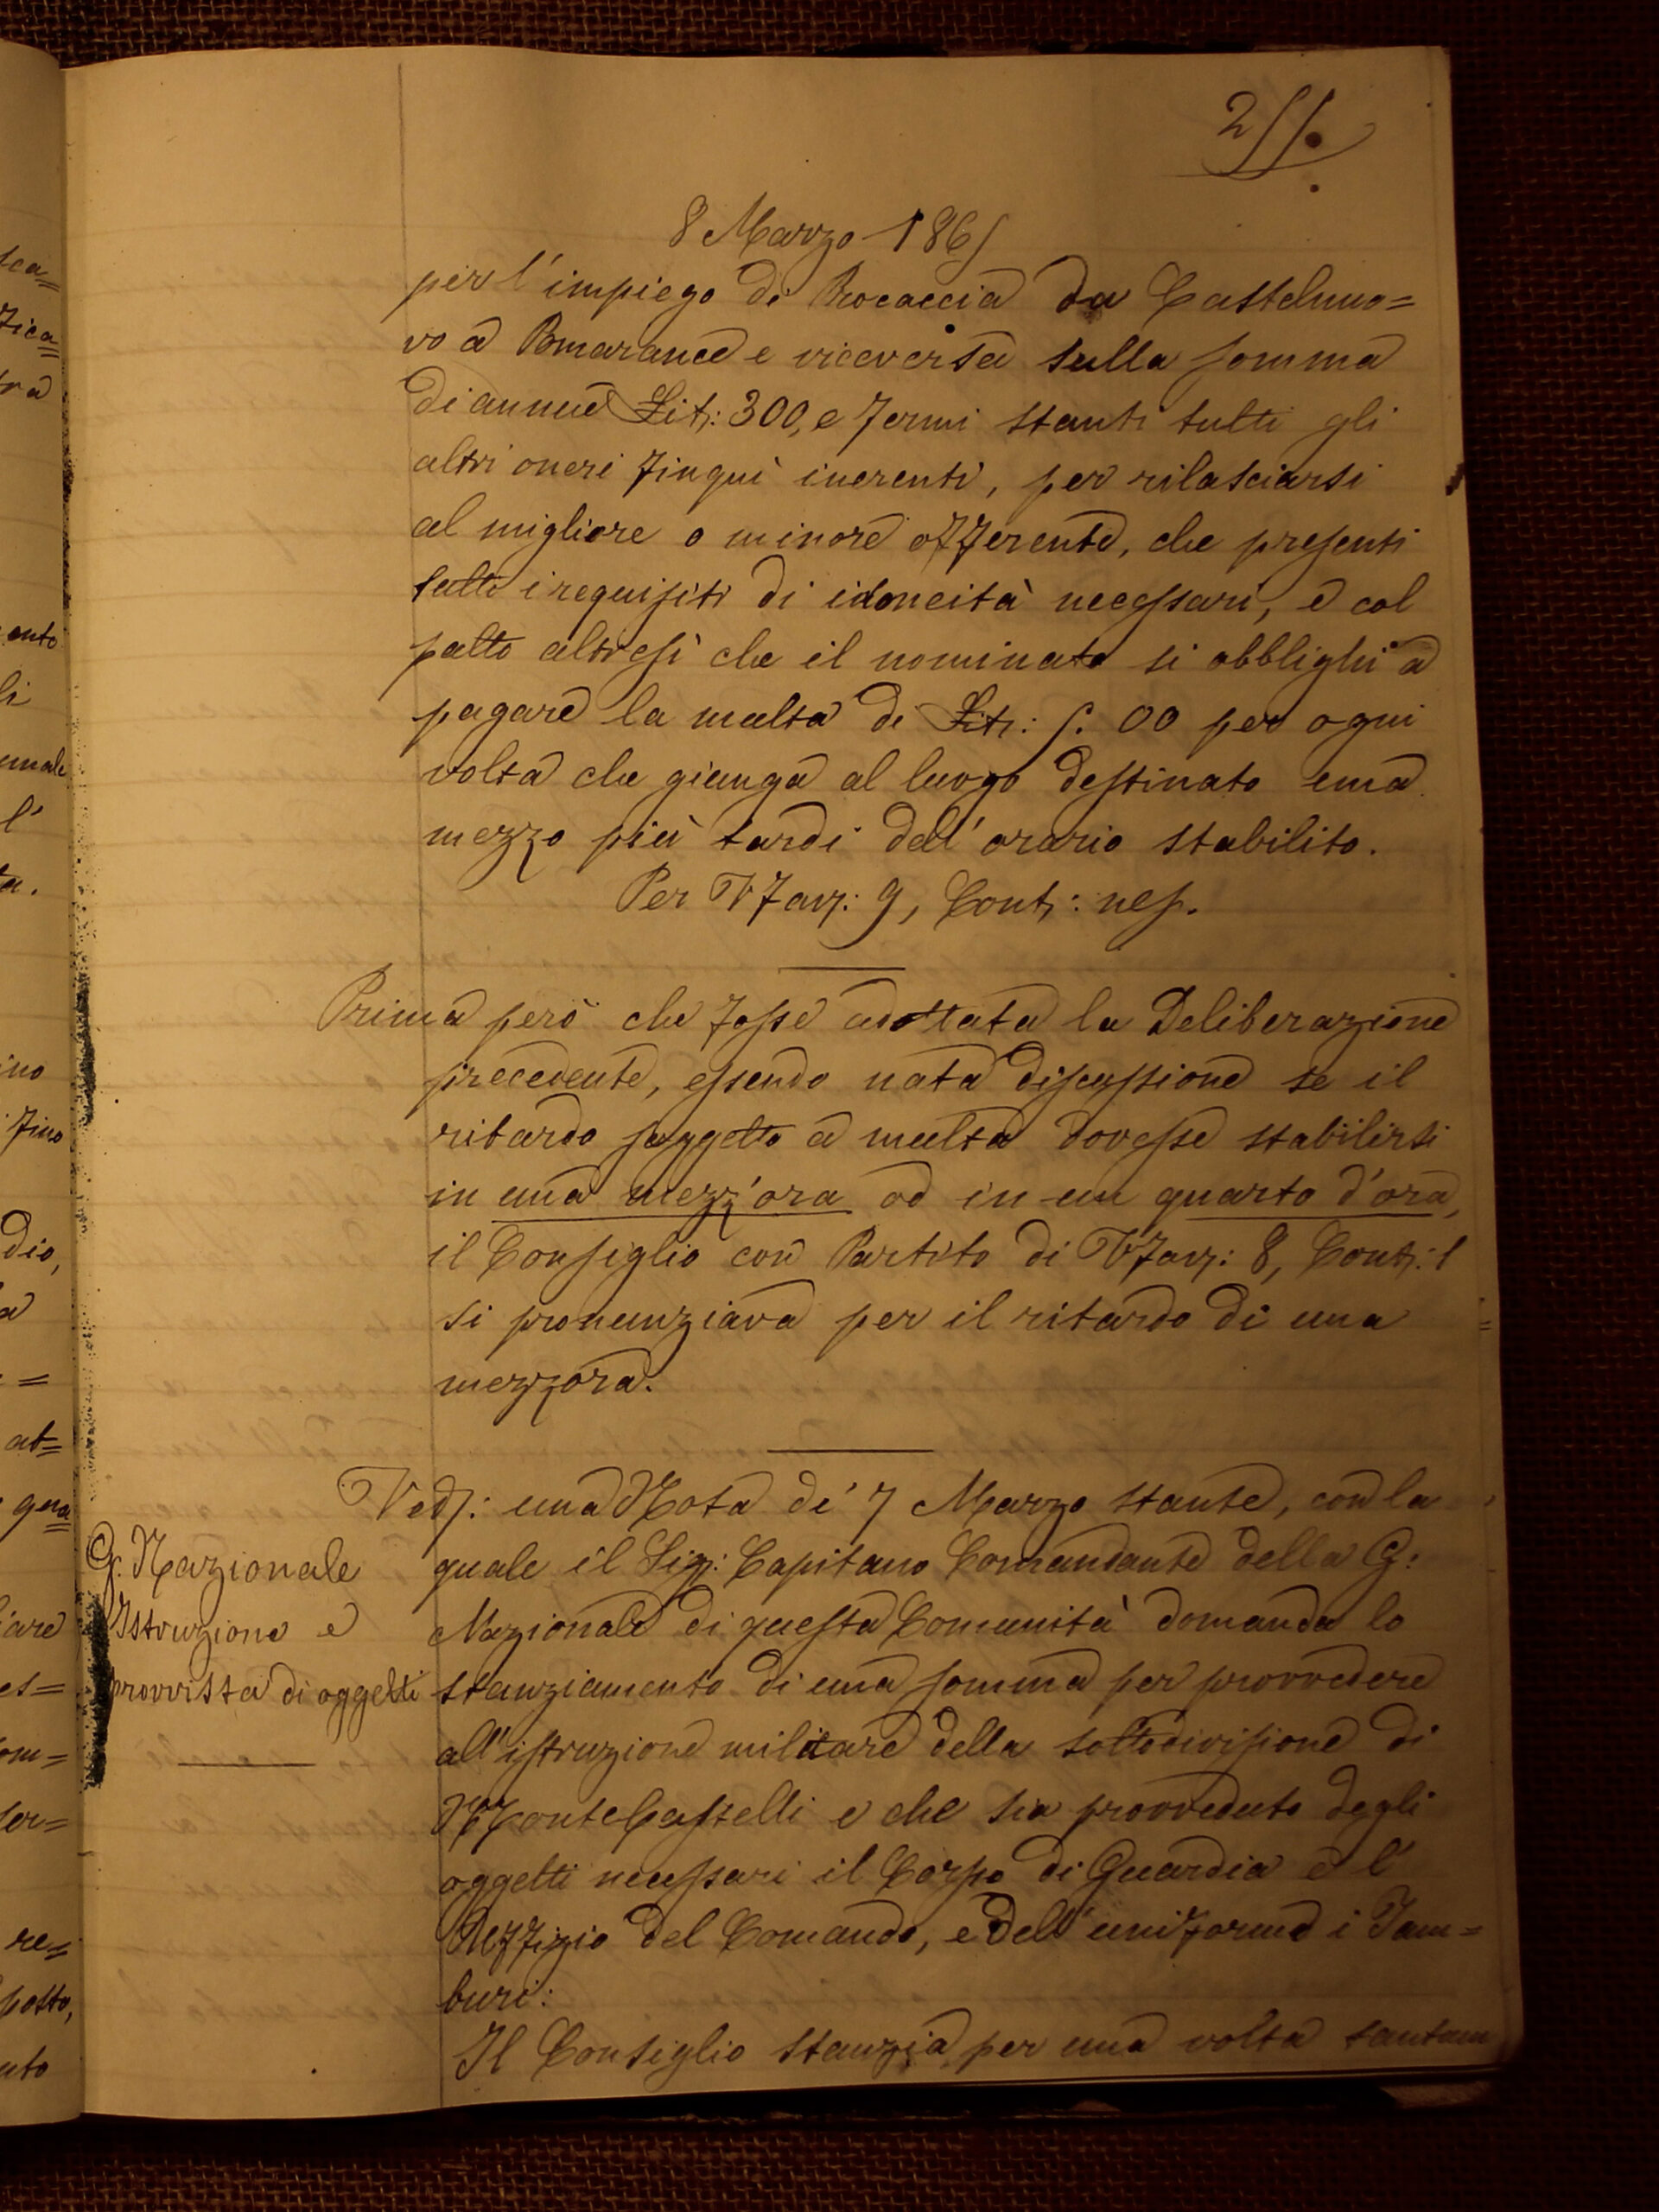 255.
8 Marzo 1865
per l'impiego di Procaccia da Castelnuo=
vo a Pomarance e viceversa sulla somma
di annue Lit: 300, e fermi stanti tutti gli
altri oneri finquì inerenti, per rilasciarsi
al migliore o minore offerente, che presenti
tutti i requisiti di idoneità necessari, e col
patto altresì che il nominato si obblighi a
pagare la multa di Lit: 5. 00 per ogni
volta che giunga al luogo destinato una
mezzo più tardi dell'orario stabilito.
Per Vti fav: 9, Cont: nes.
Prima però che fosse adottata la Deliberazione
precedente, essendo nata discussione se il
ritardo soggetto a multa dovesse stabilirsi
in una mezz'ora od in un quarto d'ora,
il Consiglio con Partito di Vti fav: 8, Cont: 1
si pronunziava per il ritardo di una
mezzora.
Ved: una Nota de' 7 Marzo stante, con la
G. Nazionale
Istruzione e
provvista di oggetti
quale il Sig: Capitano Comandante della G:
Nazionale di questa Comunità domanda lo
stanziamento di una somma per provvedere
all'istruzione militare della sottodivisione di
MonteCastelli e che sia provveduto degli
oggetti necessari il Corpo di Guardia e l'
Uffizio del Comando, e dell'uniforme i Tam=
buri:
Il Consiglio stanzia per una volta